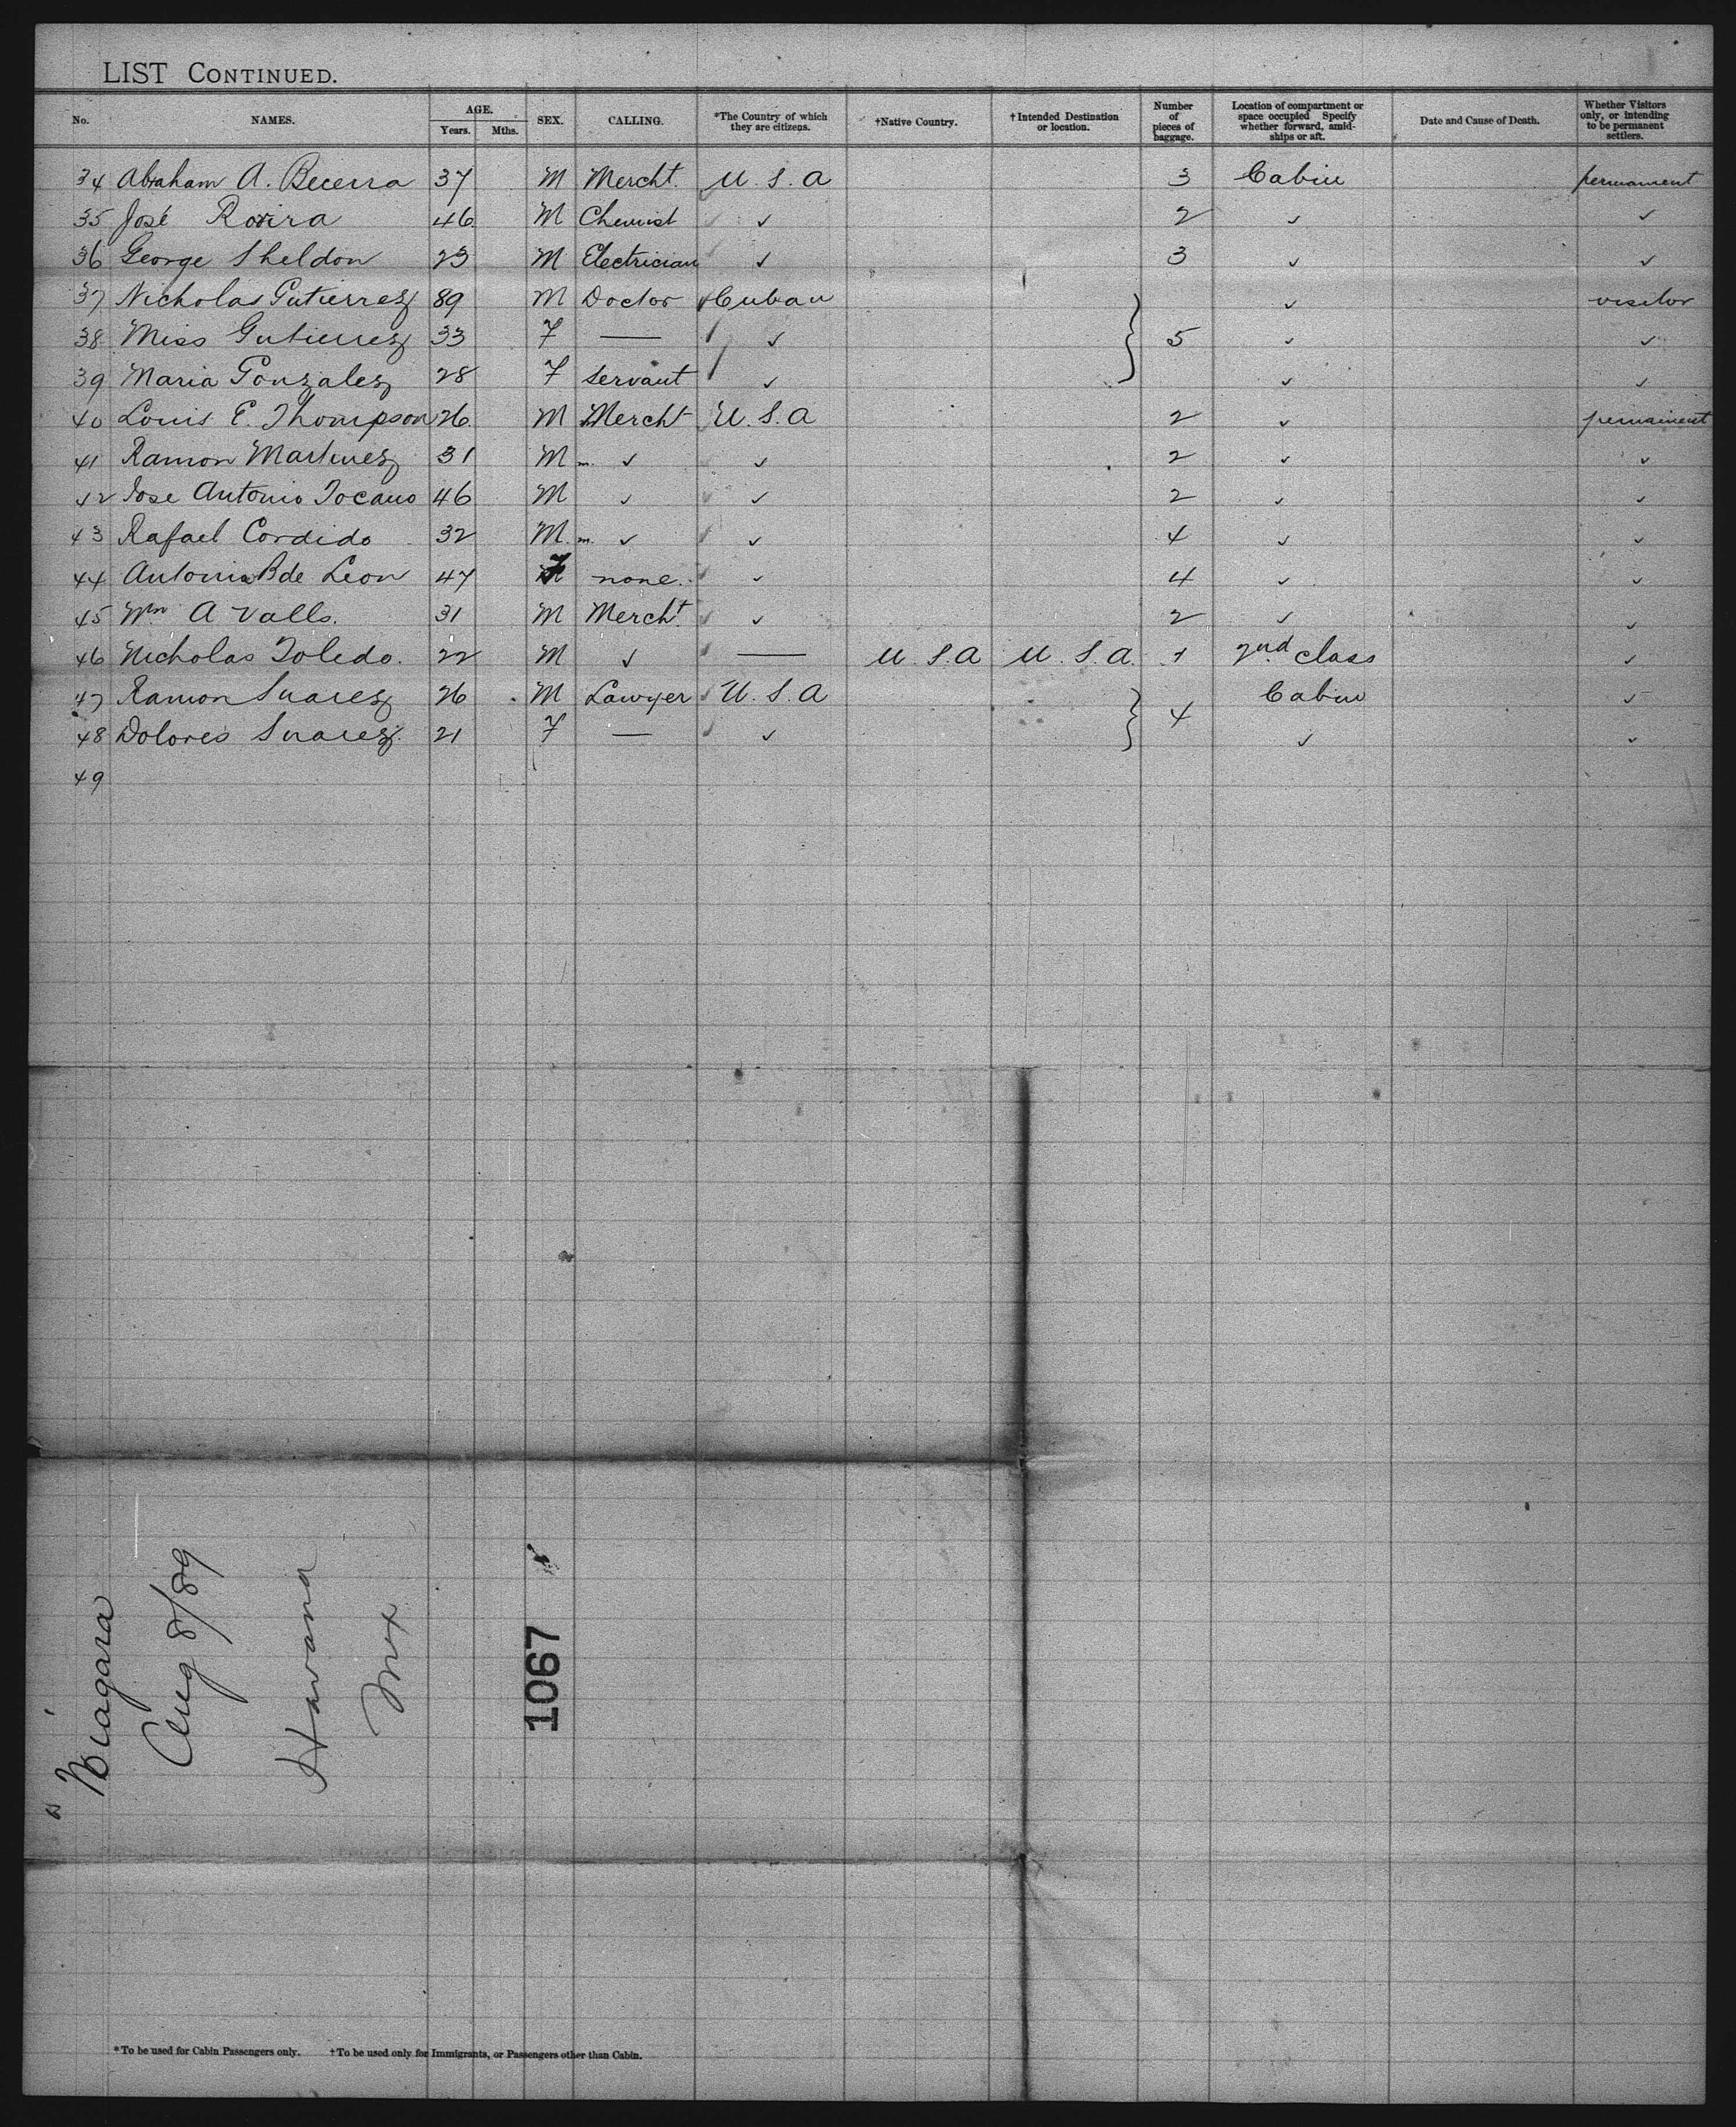 LIST CONTINUED.
No. NAMES. AGE. Years. Mths. SEX. CALLING. *The Country of which they are citizens. †Native Country. †Intended Destination or location. Number of pieces of baggage. Location of compartment or space occupied Specify whether forward, amidships or aft. Date and Cause of Death. Whether Visitors only, or intending to be permanent settlers.
34 Abraham A. Becerra 37 M Mercht. U.S.A 3 Cabin permanent
35 José Rovira 46 M Chemist ✓ 2 ✓ ✓
36 George Sheldon 23 M Electrician ✓ 3 ✓ ✓
37 Nicholas Gutierrez 89 M Doctor Cuban ✓ visitor
38 Miss Gutierrez 33 F — ✓ } 5 ✓ ✓
39 Maria Gonzalez 28 F Servant ✓ ✓ ✓
40 Louis E. Thompson 26 M Mercht U.S.A 2 ✓ permainent
41 Ramon Martinez 31 M m. ✓ ✓ 2 ✓ ✓
42 Jose Antonio Tocano 46 M ✓ ✓ 2 ✓ ✓
43 Rafael Cordido 32 M. m. ✓ ✓ 4 ✓ ✓
44 Antonia B de Leon 47 F none. ✓ 4 ✓ ✓
45 Wm A Valls. 31 M Mercht. ✓ 2 ✓ ✓
46 Nicholas Toledo. 22 M ✓ — U.S.A U.S.A. 1 2nd class ✓
47 Ramon Suarez 26 M Lawyer U.S.A } 4 Cabin ✓
48 Dolores Suarez. 21 F — ✓ ✓ ✓
49
"Niagara"
Aug 8/89
Havana
Mex
1067
*To be used for Cabin Passengers only. †To be used only for Immigrants, or Passengers other than Cabin.